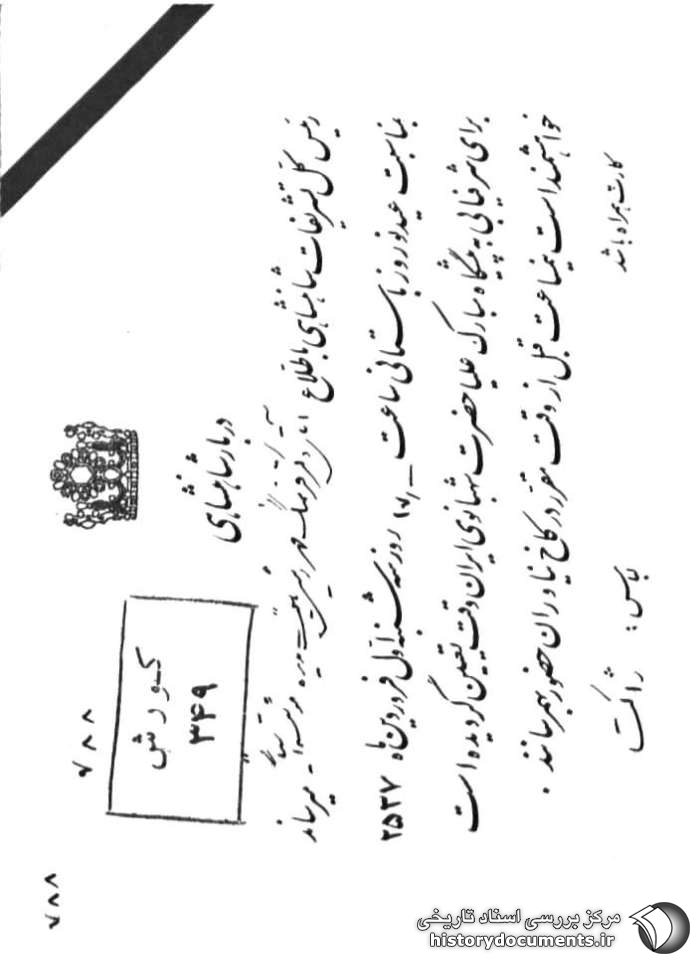 دربار شاهنشاهی
رئیس کل تشریفات شاهنشاهی باطلاع
میرساند
بمناسبت عید نوروز باستانی ساعت ۱۷/- روز سه شنبه اول فروردین ماه ۲۵۳۷
برای شرفیابی به پیشگاه مبارک علیاحضرت شهبانوی ایران وقت تعیین گردیده است
خواهشمند است نیمساعت قبل از وقت مقرر در کاخ نیاوران حضور بهم رسانند .
کارت همراه باشد
لباس : ژاکت
کورش
۳۴۹
۷۸۸
۷۸۸
مرکز بررسی اسناد تاریخی
historydocuments.ir